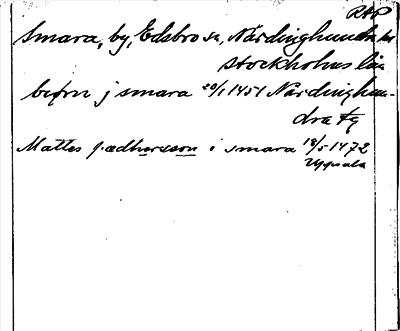 RAP
Smara, by, Edsbro sn, Närdinghundra hd
Stockholms län
biørn j smara 20/1 1451 Närdinghun-
dra tg
Mattes pædhersson i smara 18/5 1472
Uppsala